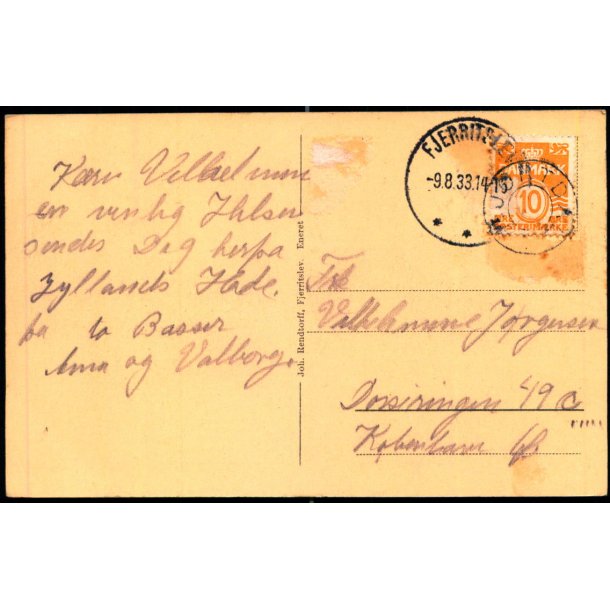 Kære Vilhelmine
en venlig Hilsen
sendes Dig herfra
Jyllands Hede.
fra to Basser
Anna og Valborg.
Joh. Rendtorff, Fjerritslev. Eneret
FJERRITSLEV
-9.8.33.14-
DANMARK
10
POSTFRIMÆRKE
Frk
Vilhelmine Jørgensen
49
København